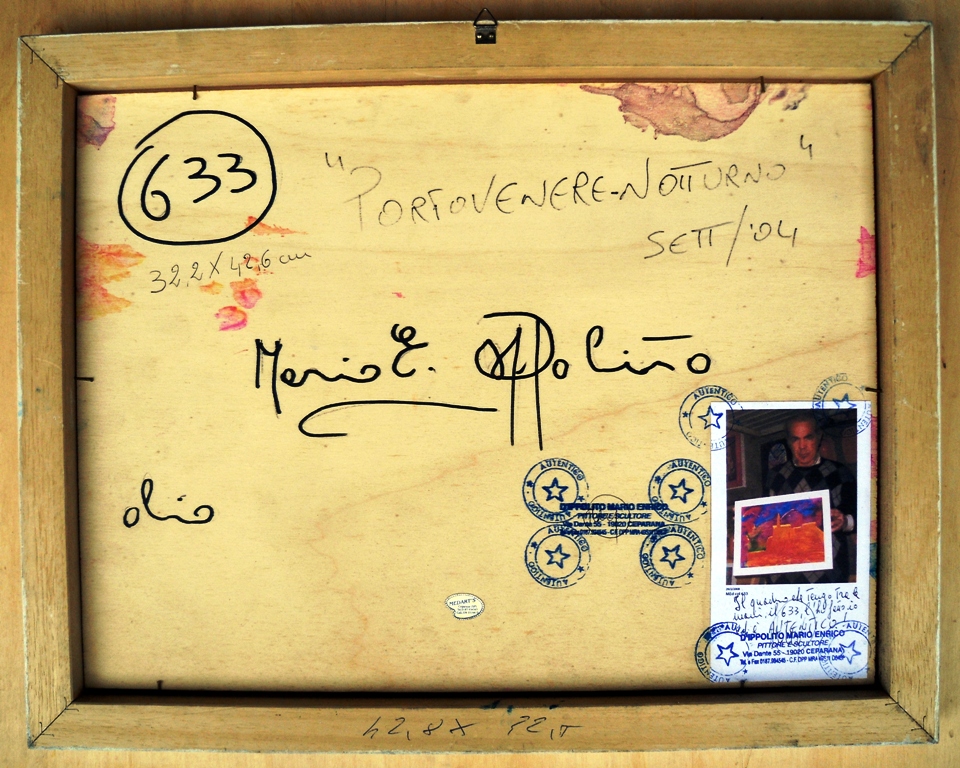 633
"PORTOVENERE-NOTTURNO"
SETT/'04
32,2 X 42,6 cm
Mario E.
olio
AUTENTICO
AUTENTICO
AUTENTICO
AUTENTICO
D'IPPOLITO MARIO ENRICO
PITTORE E SCULTORE
Via Dante 55 - 19020 CEPARANA
AUTENTICO
AUTENTICO
MEDART'S
Il quadro che Tengo Tra le
mani, il 633,
è AUTENTICO!
D'IPPOLITO MARIO ENRICO
PITTORE E SCULTORE
Via Dante 55 - 19020 CEPARANA
Tel. e Fax 0187.
42,8 X